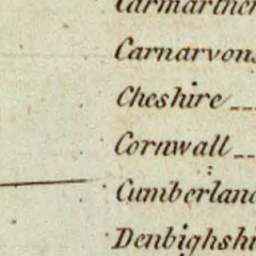 Carmarthen
Carnarvons
Cheshire
Cornwall
Cumberland
Denbighshi